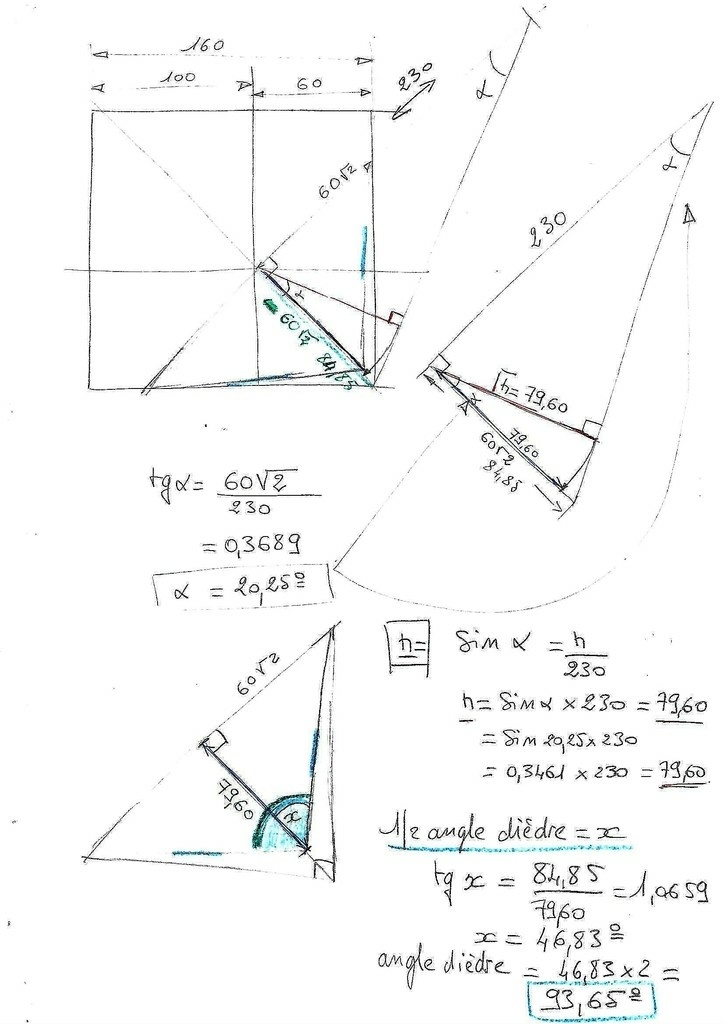 160
100
60
230
α
60√2
α
60√2
84,85
α
230
h = 79,60
α
79,60
60√2
84,85
tg α = 60√2
230
= 0,3689
α = 20,25º
60√2
79,60
x
h = sin α = h
230
h = sin α × 230 = 79,60
= sin 20,25 × 230
= 0,3461 × 230 = 79,60
1/2 angle dièdre = x
tg x = 84,85 = 1,0659
79,60
x = 46,83º
angle dièdre = 46,83 × 2 =
93,65º